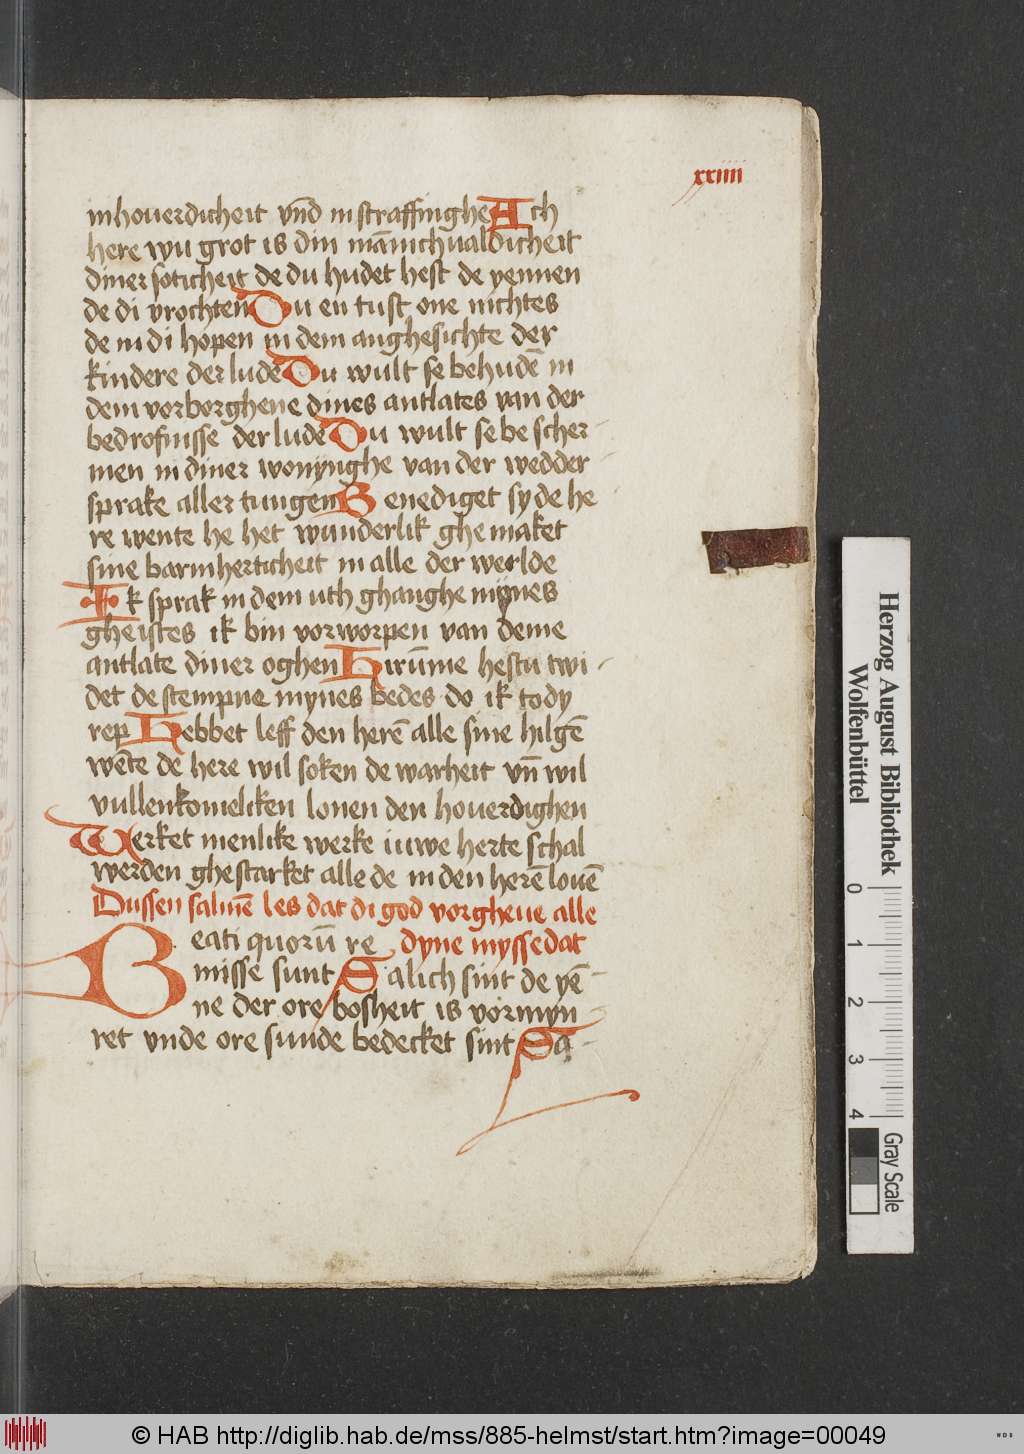 xxiiii
in houerdicheit vn̄d in straffinghe Ach
here wu grot is din mānichualdicheit
diner soticheit de du hudet hest de yennen
de di vrochten Du en tust one nichtes
de in di hopen in dem anghesichte der
kindere der lude Du wult se behudē in
dem vorborghene dines antlates van der
bedrofnisse der lude Du wult se be scher-
men in diner wonynghe van der wedder-
sprake aller tungen Benediget sy de he
re wente he het wunderlik ghe maket
sine barmherticheit in alle der werlde
Ik sprak in dem vth ghanghe mynes
gheistes ik bin vorworpen van deme
antlate diner oghen Hirūme hestu twi-
det de stempne mynes bedes do ik to dy
rep Hebbet leff den herē alle sine hilgē
wēte de here wil soken de warheit vn̄ wil
vullenkomeliken lonen den houerdighen
Werket menlike werke iuwe herte schal
werden ghestarket alle de in den herē louē
Dussen salmē les dat di god vorgheue alle
Beati quorū re dyne myssedat
misse sunt Salich sint de yē-
ne der ore bosheit is vormyn
ret vnde ore sunde bedecket sint Sa-
Herzog August Bibliothek
Wolfenbüttel
0 1 2 3 4
Gray Scale
© HAB http://diglib.hab.de/mss/885-helmst/start.htm?image=00049